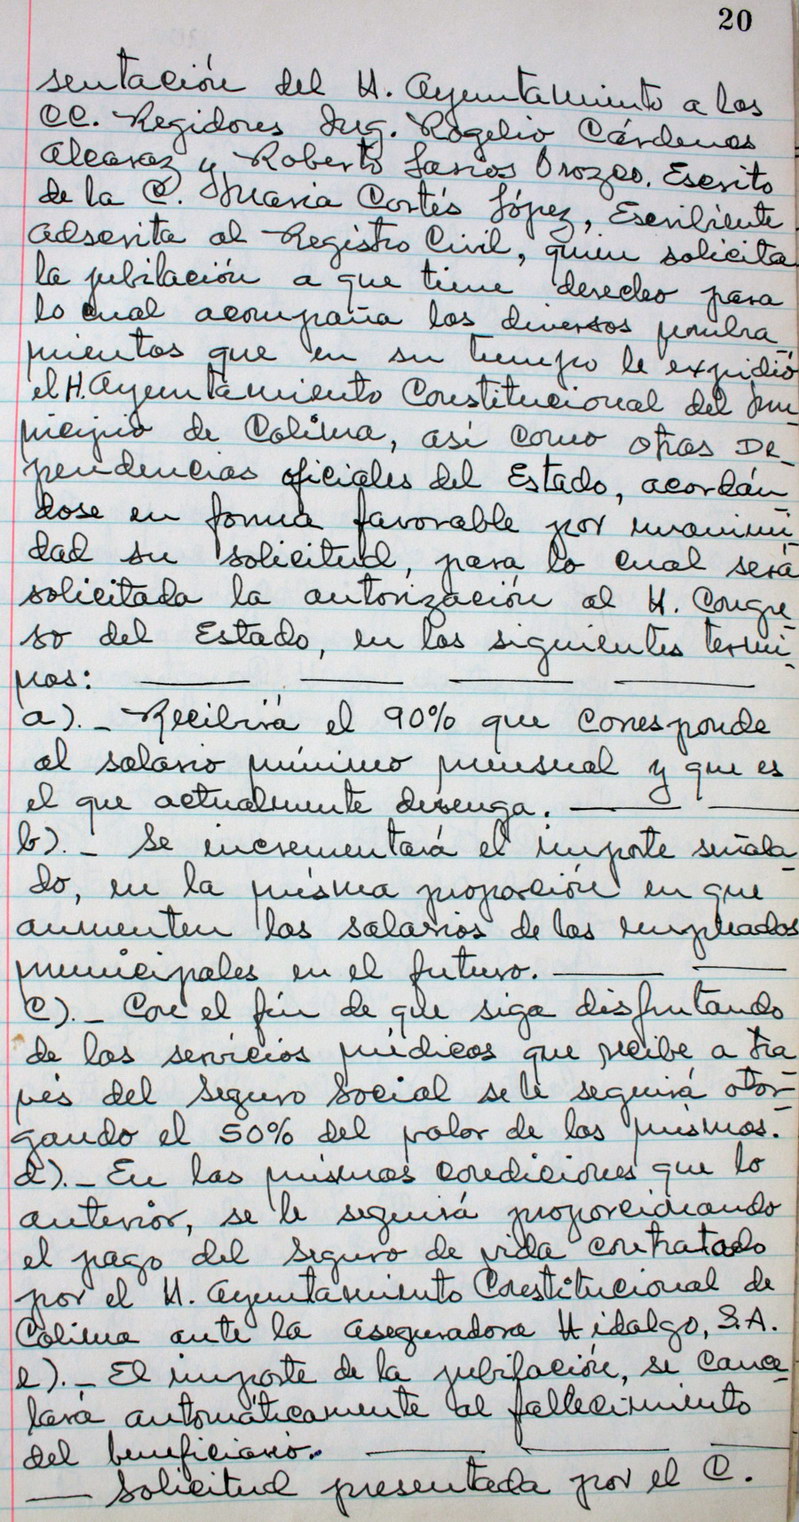 20
sentación del H. Ayuntamiento a los
CC. Regidores Ing. Rogelio Cárdenas
Alcaraz y Roberto Larios Orozco. Escrito
de la C. Maria Cortés López, Escribiente
adscrita al Registro Civil, quien solicita
la jubilación a que tiene derecho para
lo cual acompaña los diversos nombra-
mientos que en su tiempo le expidió
el H. Ayuntamiento Constitucional del Mu-
nicipio de Colima, así como otras De-
pendencias oficiales del Estado, acordán-
dose en forma favorable por unanimi-
dad su solicitud, para lo cual será
solicitada la autorización al H. Congre-
so del Estado, en los siguientes térmi-
nos: — — — —
a).- Recibirá el 90% que corresponde
al salario mínimo mensual y que es
el que actualmente devenga. — —
b).- Se incrementará el importe señala-
do, en la misma proporción en que
aumenten los salarios de los empleados
municipales en el futuro. — —
C).- Con el fin de que siga disfrutando
de los servicios médicos que recibe a tra-
vés del Seguro Social se le seguirá otor-
gando el 50% del valor de los mismos.
d).- En las mismas condiciones que lo
anterior, se le seguirá proporcionando
el pago del Seguro de vida contratado
por el H. Ayuntamiento Constitucional de
Colima ante la Aseguradora Hidalgo, S.A.
e).- El importe de la jubilación, se cance-
lará automáticamente al fallecimiento
del beneficiario. — — —
— Solicitud presentada por el C.